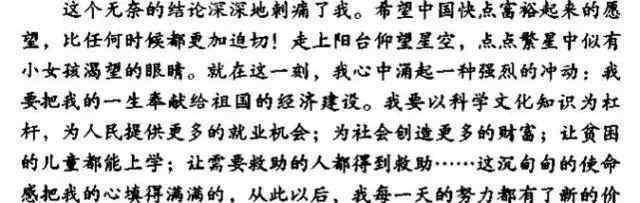 这个无奈的结论深深地刺痛了我。希望中国快点富裕起来的愿
望，比任何时候都更加迫切！走上阳台仰望星空，点点繁星中似有
小女孩渴望的眼睛。就在这一刻，我心中涌起一种强烈的冲动：我
要把我的一生奉献给祖国的经济建设。我要以科学文化知识为杠
杆，为人民提供更多的就业机会；为社会创造更多的财富；让贫困
的儿童都能上学；让需要救助的人都得到救助……这沉甸甸的使命
感把我的心填得满满的，从此以后，我每一天的努力都有了新的价